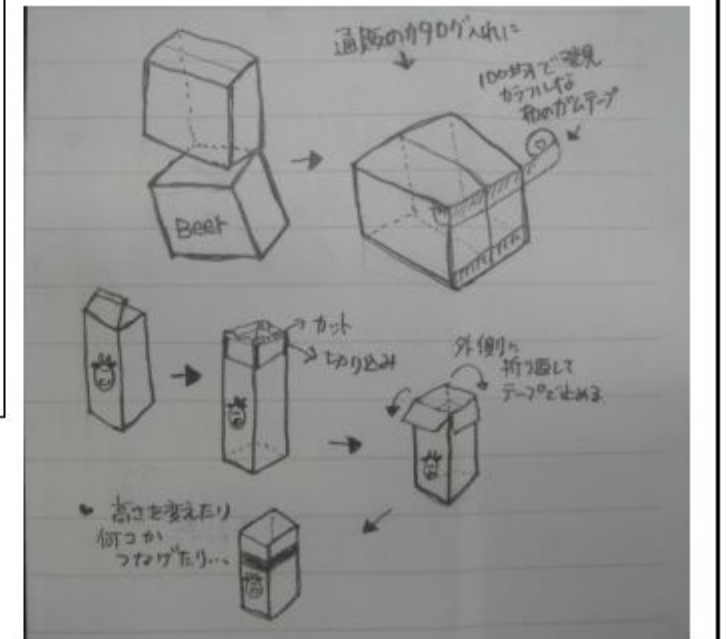 通販のカタログ入れに
100均で発見
カラフルな
布のガムテープ
Beer
カット
切り込み
外側に
折り返して
テープで止める
高さを変えたり
何コか
つなげたり…